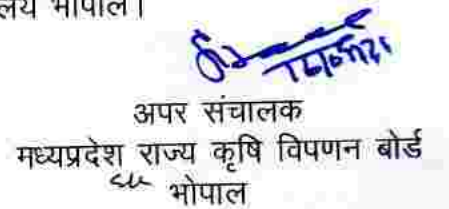 लय भोपाल।
अपर संचालक
मध्यप्रदेश राज्य कृषि विपणन बोर्ड
भोपाल